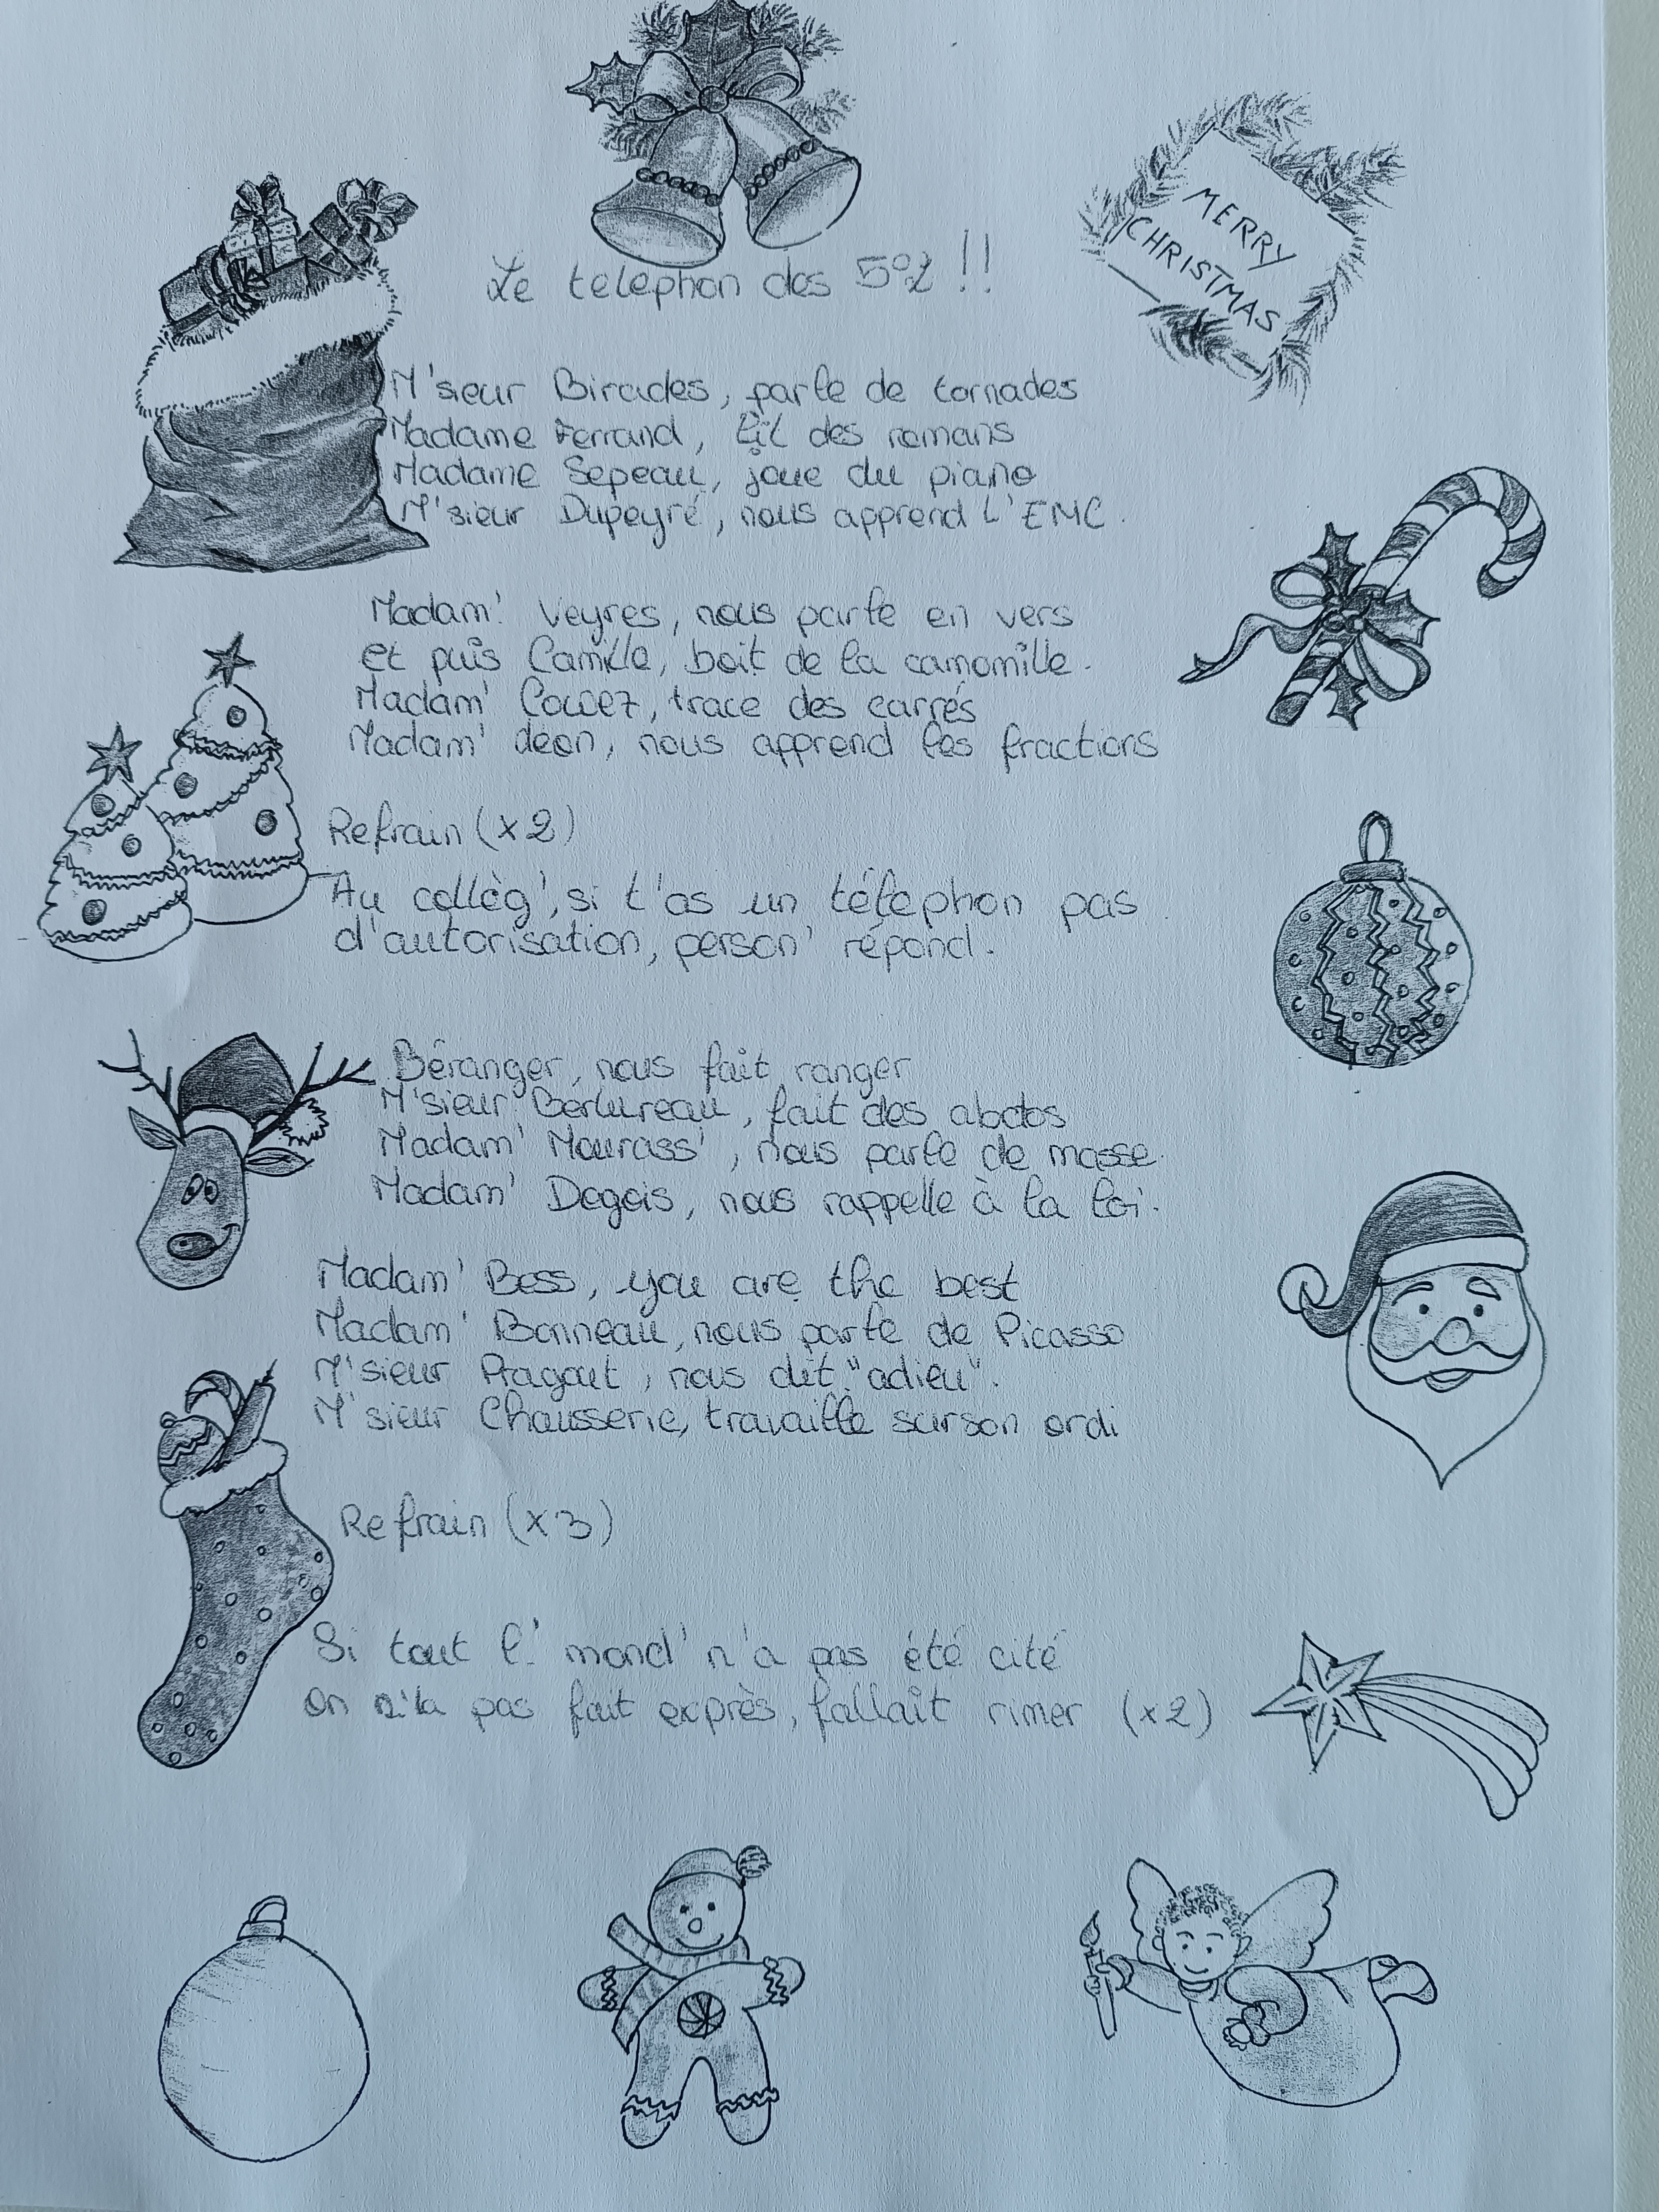 MERRY
CHRISTMAS
Le telephon des 5°2 !!
M'sieur Birades, parle de tornades
Madame Ferrand, lit des romans
Madame Sepeau, joue du piano
M'sieur Dupeyré, nous apprend L'EMC.
Madam' Veyres, nous parle en vers
et puis Camille, boit de la camomille.
Madam' Cowez, trace des carrés
Madam' déon, nous apprend les fractions
Refrain (x2)
Au collèg', si t'as un téléphon pas
d'autorisation, person' répond.
Béranger, nous fait ranger
M'sieur Berlureau, fait des abdos
Madam' Mourass', nous parle de masse.
Madam' Degois, nous rappelle à la loi.
Madam' Bess, you are the best
Madam' Bonneau, nous parle de Picasso
M'sieur Pragout, nous dit "adieu".
M'sieur Chausserie, travaille sur son ordi
Refrain (x3)
Si tout l' mond' n'a pas été cité
On n'la pas fait exprès, fallait rimer (x2)